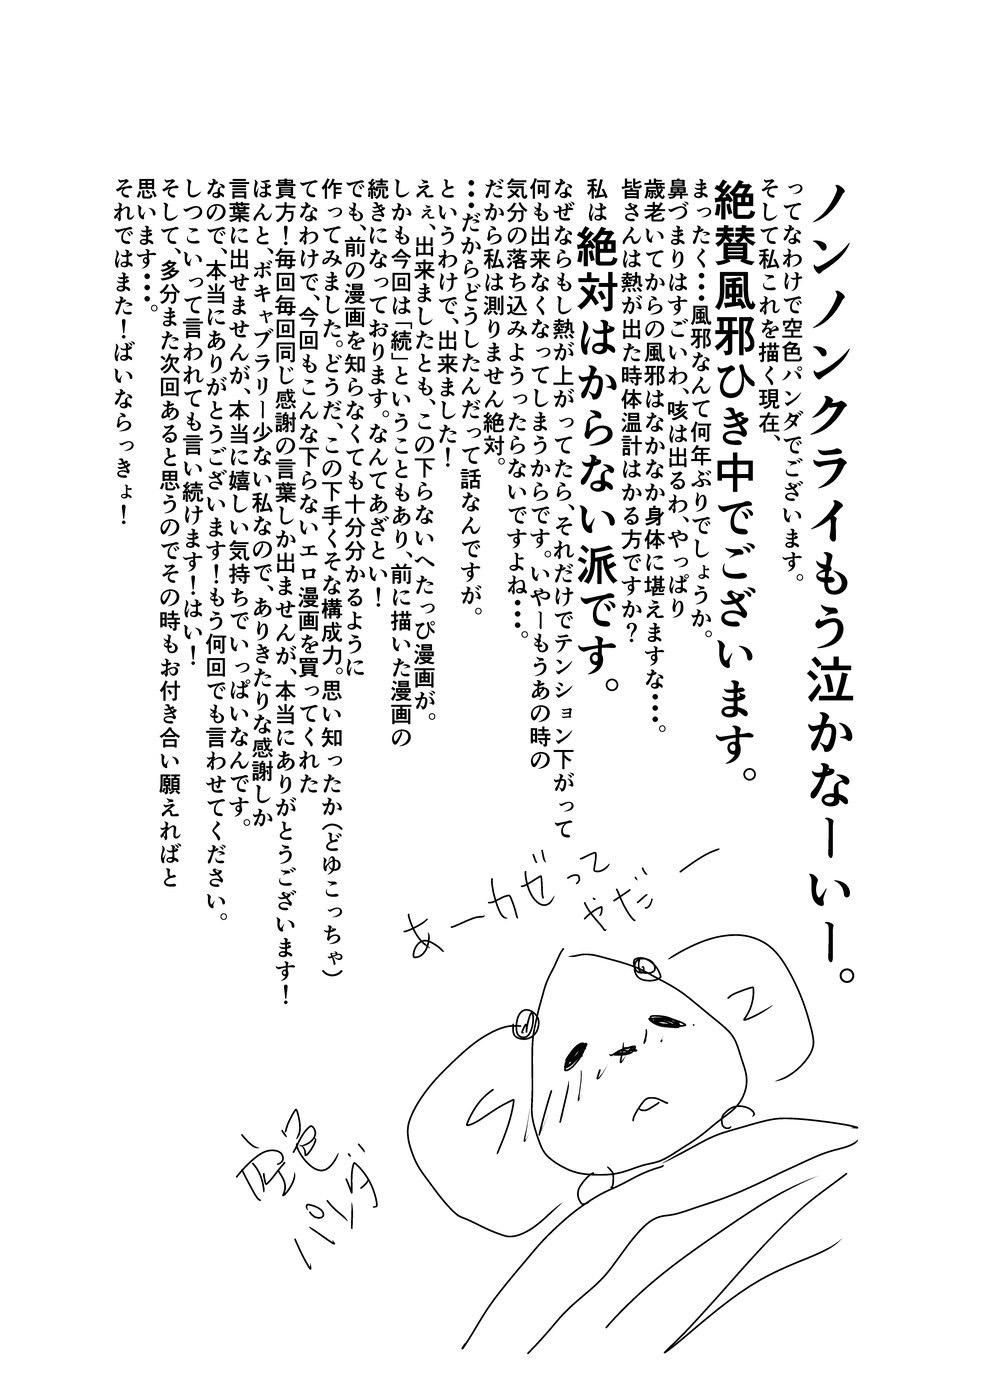 ノンノンクライもう泣かなーいー。
ってなわけで空色パンダでございます。
そして私これを描く現在、
絶賛風邪ひき中でございます。
まったく・・・風邪なんて何年ぶりでしょうか。
鼻づまりはすごいわ、咳は出るわ、やっぱり
歳老いてからの風邪はなかなか身体に堪えますな・・・。
皆さんは熱が出た時体温計はかる方ですか?
私は絶対はからない派です。
なぜならもし熱が上がってたら、それだけでテンション下がって
何も出来なくなってしまうからです。いやーもうあの時の
気分の落ち込みようったらないですよね・・・。
だから私は測りません絶対。
・・・だからどうしたんだって話なんですが。
というわけで、出来ました!
えぇ、出来ましたとも、この下らないへたっぴ漫画が。
しかも今回は「続」ということもあり、前に描いた漫画の
続きになっております。なんてあざとい!
でも、前の漫画を知らなくても十分分かるように
作ってみました。どうだ、この下手くそな構成力。思い知ったか(どゆこっちゃ)
てなわけで、今回もこんな下らないエロ漫画を買ってくれた
貴方!毎回毎回同じ感謝の言葉しか出ませんが、本当にありがとうございます!
ほんと、ボキャブラリー少ない私なので、ありきたりな感謝しか
言葉に出せませんが、本当に嬉しい気持ちでいっぱいなんです。
なので、本当にありがとうございます!もう何回でも言わせてください。
しつこいって言われても言い続けます!はい!
そして、多分また次回あると思うのでその時もお付き合い願えればと
思います・・・。
それではまた!ばいならっきょ!
あーカゼって
やだー
空色
パンダ